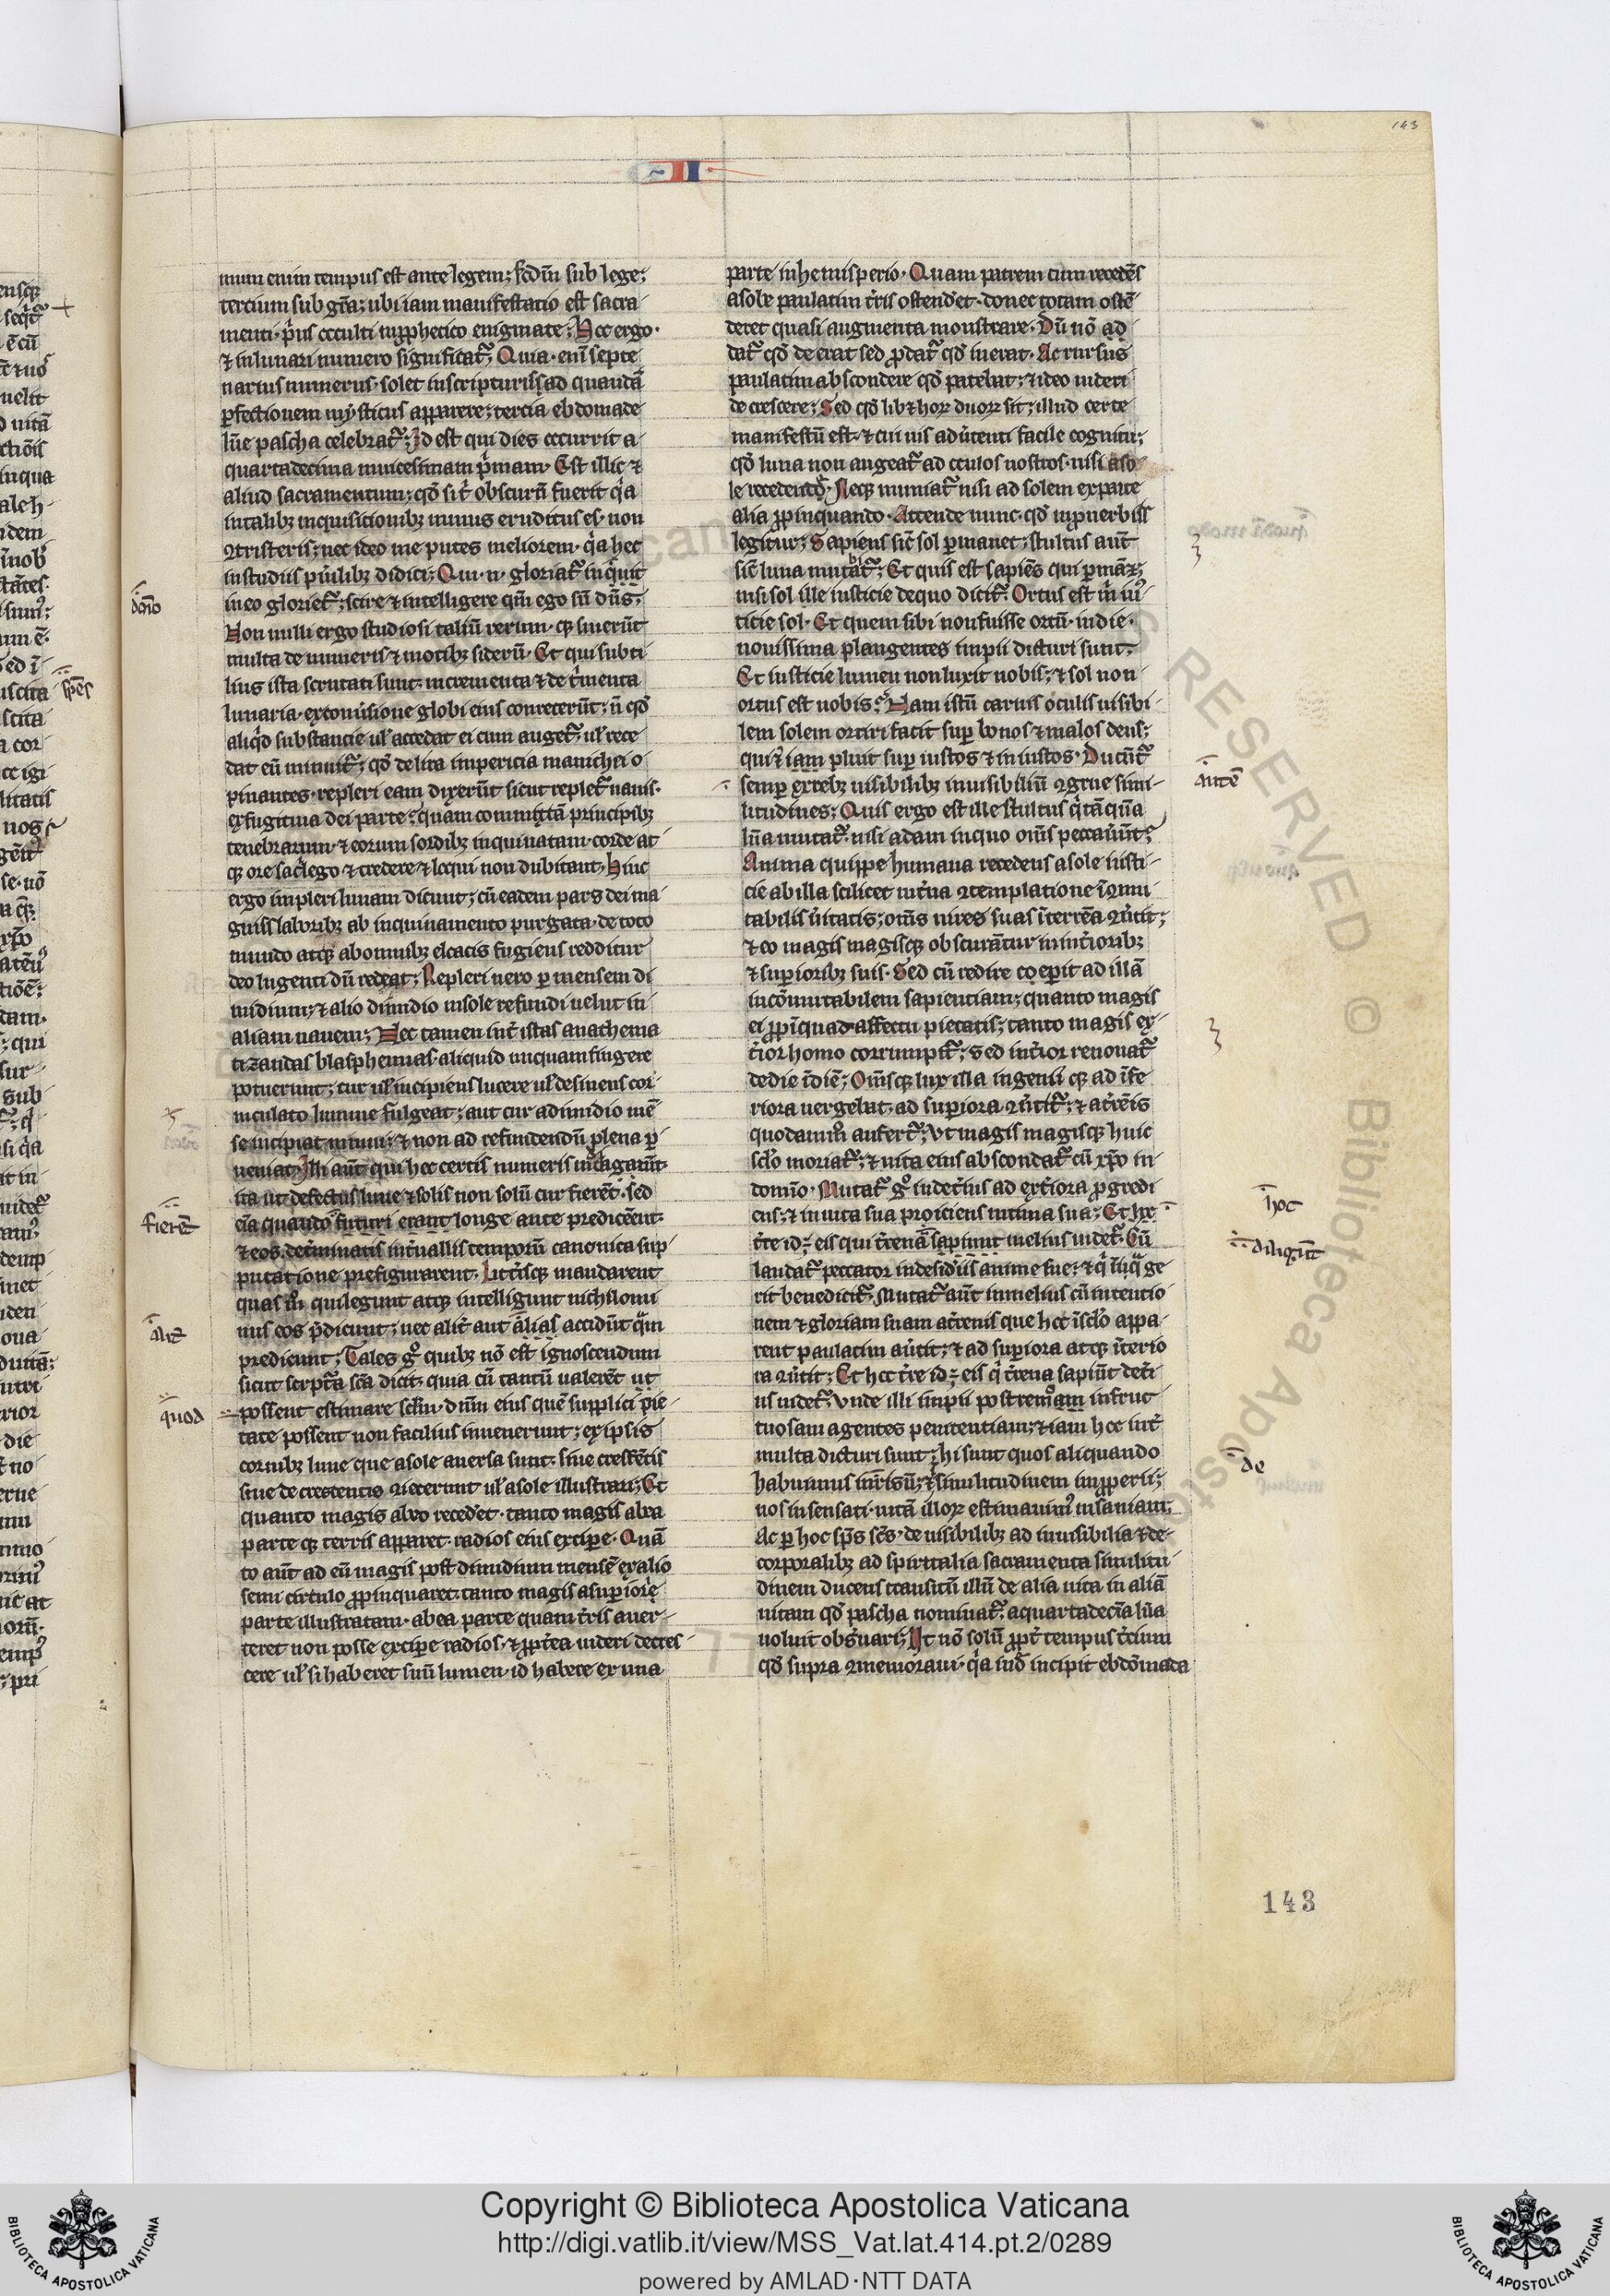 143
mum enim tempus est ante legem; scd̄m sub lege;
tercium sub grā; ubi iam manifestatio est sacra
menti. p̄us occulti in prophetico enigmate; Hoc ergo.
⁊ in lunari numero significat᷑; Quia. enī septe
narius numerus. solet in scripturis ad quandā
ꝑfectionem mysticus apparere; tercia ebdomade
lūe pascha celebrat᷑; Id est qui dies occurrit a
quartadecima in uicesimam p̄mam. Est illic ⁊
aliud sacramentum; qd̄ si t̄ obscurū fuerit q̄a
in talibꝫ inquisitionibꝫ minus eruditus es. non
ꝯtristeris; nec ideo me putes meliorem. q̄a hec
in studiis pūilibꝫ didici; Qui. n̄. gloriat᷑ inquit
in eo gloriet᷑; scire ⁊ intelligere qm̄ ego sū dn̄s;
Non nulli ergo studiosi taliū rerum. qꝫ sinerūt
multa de numeris ⁊ motibꝫ siderū. Et qui subti
lius ista scrutati sunt. incrementa ⁊ detimenta
lunaria. ex conūsione globi eius coniecerūt; n̄ qd̄
aliqd̄ substancie ul̄ accedat ei cum auget᷑; ul̄ rece
dat cū minuit᷑; qd̄ delira impericia manichei o
pinantes. repleri eam dixerūt sicut replet᷑ nauis.
ex fugitiua dei parte. quam commixtā principibꝫ
tenebrarum. ⁊ eorum sordibꝫ inquinatam. corde at
qꝫ ore sac̄lego ⁊ credere ⁊ loqui non dubitant. Hinc
ergo impleri lunam dicunt; cū eadem pars dei ma
gnis laboribꝫ ab inquinamento purgata. de toto
mundo atqꝫ ab omnibꝫ cloacis fugiens redditur
deo lugenti dū redeat; Repleri uero ꝑ mensem di
midium; ⁊ alio dimidio in sole refundi uelut in
aliam nauem; Nec tamen int̄ istas anathema
tizandas blasphemias. aliquid unquam fingere
potuerunt; cur ul̄ incipiens lucere ul̄ desinens cor
niculato lumine fulgeat; aut cur a dimidio mē
se incipiat minui; ⁊ non ad refundendū plena ꝑ
ueniat; Illi aūt qui hec certis numeris indagarūt.
ita ut defectus lune ⁊ solis non solū cur fierēt. sed
eciā quando futuri erant longe ante predicerēnt.
⁊ eos. det̄minatis int̄uallis temporū canonica sup
putatione prefigurarent. Litt̄isqꝫ mandarent
quas m̊ qui legunt atqꝫ intelligunt nichilomi
nus eos p̄dicunt; nec alit̄ aut ālias accidūt qm̄
predicunt; Tales gͦ quibꝫ nō est ignoscendum
sicut scrptā scā dicit. quia cū tantū ualerēt ut
possent estimare scl̄m. dn̄m eius quē supplici pie
tate possent non facilius inuenerunt; ex ipsis
cornibꝫ lune que a sole auersa sunt. siue crescētis
siue decrescentis ꝯiecerunt ul̄ a sole illustrari; Et
quanto magis ab eo recedet. tanto magis ab ea
parte qꝫ terris apparet. radios eius excipe. Quā
to aūt ad eū magis post dimidium mensē ex alio
semi circulo ꝓpinquaret. tanto magis a superiore
parte illustratam. ab ea parte quam t̄ris auer
teret non posse excipe radios. ⁊ ꝓpt̄ea uideri decres
cere ul̄ si haberet suū lumen. id habere ex una
parte in hemisperio. Quam patrem cum recedēs
a sole paulatim t̄ris ostenderet. donec totam ostē
deret quasi augmenta monstrare. Dū nō ad
dat᷑ qd̄ deerat sed ꝓdat᷑ qd̄ inerat. Ac rursus
paulatim abscondere qd̄ patebat; ⁊ ideo uideri
decrescere; Sed qd̄ libꝫ hoꝝ duoꝝ sit; illud certe
manifestū est. ⁊ cui uis adūtenti facile cognitū;
qd̄ luna non augeat᷑ ad oculos nostros. nisi a so
le recedendo. Neqꝫ minuat᷑ nisi ad solem ex parte
alia ꝓpinquando. Attende nunc. qd̄ in ꝓuerbiis
legitur; Sapiens sic̄ sol ꝑmanet; stultus aūt
sic̄ luna mutat᷑; Et quis est sapiēs qui ꝑmanꝫ;
nisi sol ille iusticie de quo dicit᷑. Ortus est m̄ iu
titie sol. Et quem sibi non fuisse ortū. in die.
nouissima plangentes impii dicturi sunt.
Et iusticie lumen non luxit nobis; ⁊ sol non
ortus est nobis; Nam istū carnis oculis uisibi
lem solem oriri facit suꝑ bonos ⁊ malos deus;
qui ⁊ iam pluit suꝑ iustos ⁊ iniustos. Ducūt᷑
semꝑ ex rebꝫ uisibilibꝫ inuisibiliū ꝯgrue simi
litudines; Quis ergo est ille stultus q̄ tāq̄ua
lūa mutat᷑. nisi adam in quo om̄s peccauūt;
Anima quippe humana recedens a sole iusti
cie ab illa scilicet int̄na ꝯtemplatione īꝯmu
tabilis ūitatis; om̄s uires suas ī terrēa ꝯūtit;
⁊ eo magis magisqꝫ obscurātur in int̄ioribꝫ
⁊ suꝑioribꝫ suis. Sed cū redire coeperit ad illā
incōmutabilem sapientiam; quanto magis
ei ꝓpīquad affectu pietatis; tanto magis ex
t̄ior homo corrumpit᷑; sed int̄ior renouat᷑
de die ī diē; Om̄isqꝫ lux illa ingenii qꝫ ad īfe
riora uergebat. ad superiora ꝯūtit᷑; ⁊ a t̄rēis
quodam m̊ aufert᷑; Ut magis magisqꝫ huic
scl̄o moriat᷑; ⁊ uita eius abscondat᷑ cū xp̄o in
domīo. Mutat᷑ gͦ in det̄ius ad ext̄iora ꝓgredi
ens; ⁊ in uita sua proiciens intima sua; Et hec
t̄re id; eis qui t̄renā sapiunt melius uidet᷑. Cū
laudat᷑ peccator in desid̄iis anime sue; ⁊ q̄ iniqͣ ge
rit benedicit᷑. Mutat᷑ aūt in melius cū intentio
nem ⁊ gloriam suam a t̄renis que hec ī scl̄o appa
rent paulatim aūtit; ⁊ ad superiora atqꝫ īterio
ra ꝯūtit; Et hec t̄re id; eis q̄ t̄rena sapiūt det̄i
us uidet᷑. Unde illi impii postremam infruc
tuosam agentes penitentiam; ⁊ iam hec int̄
multa dicturi sunt; hi sunt quos aliquando
habuimus in risū; ⁊ similitudinem improperii;
nos insensati. uitā illoꝝ estimauimꝰ insaniam;
Ac ꝑ hoc sp̄s sc̄s. de uisibilibꝫ ad inuisibilia ⁊ de
corporalibꝫ ad spiritalia sacramenta similitu
dinem ducens transitū illū de alia uita in aliā
uitam qd̄ pascha nominat᷑. a quartadecīa lūa
uoluit obs̄uari; Ut nō solū ꝓpt̄ tempus t̄cium
qd̄ supra ꝯmemoraui. q̄a īnd̄ incipit ebdōmada
dōīo
fierēt
alit̄
quod
autē
hoc
diligūt
de
143
Copyright © Biblioteca Apostolica Vaticana
http://digi.vatlib.it/view/MSS_Vat.lat.414.pt.2/0289
powered by AMLAD·NTT DATA
BIBLIOTECA APOSTOLICA VATICANA
BIBLIOTECA APOSTOLICA VATICANA